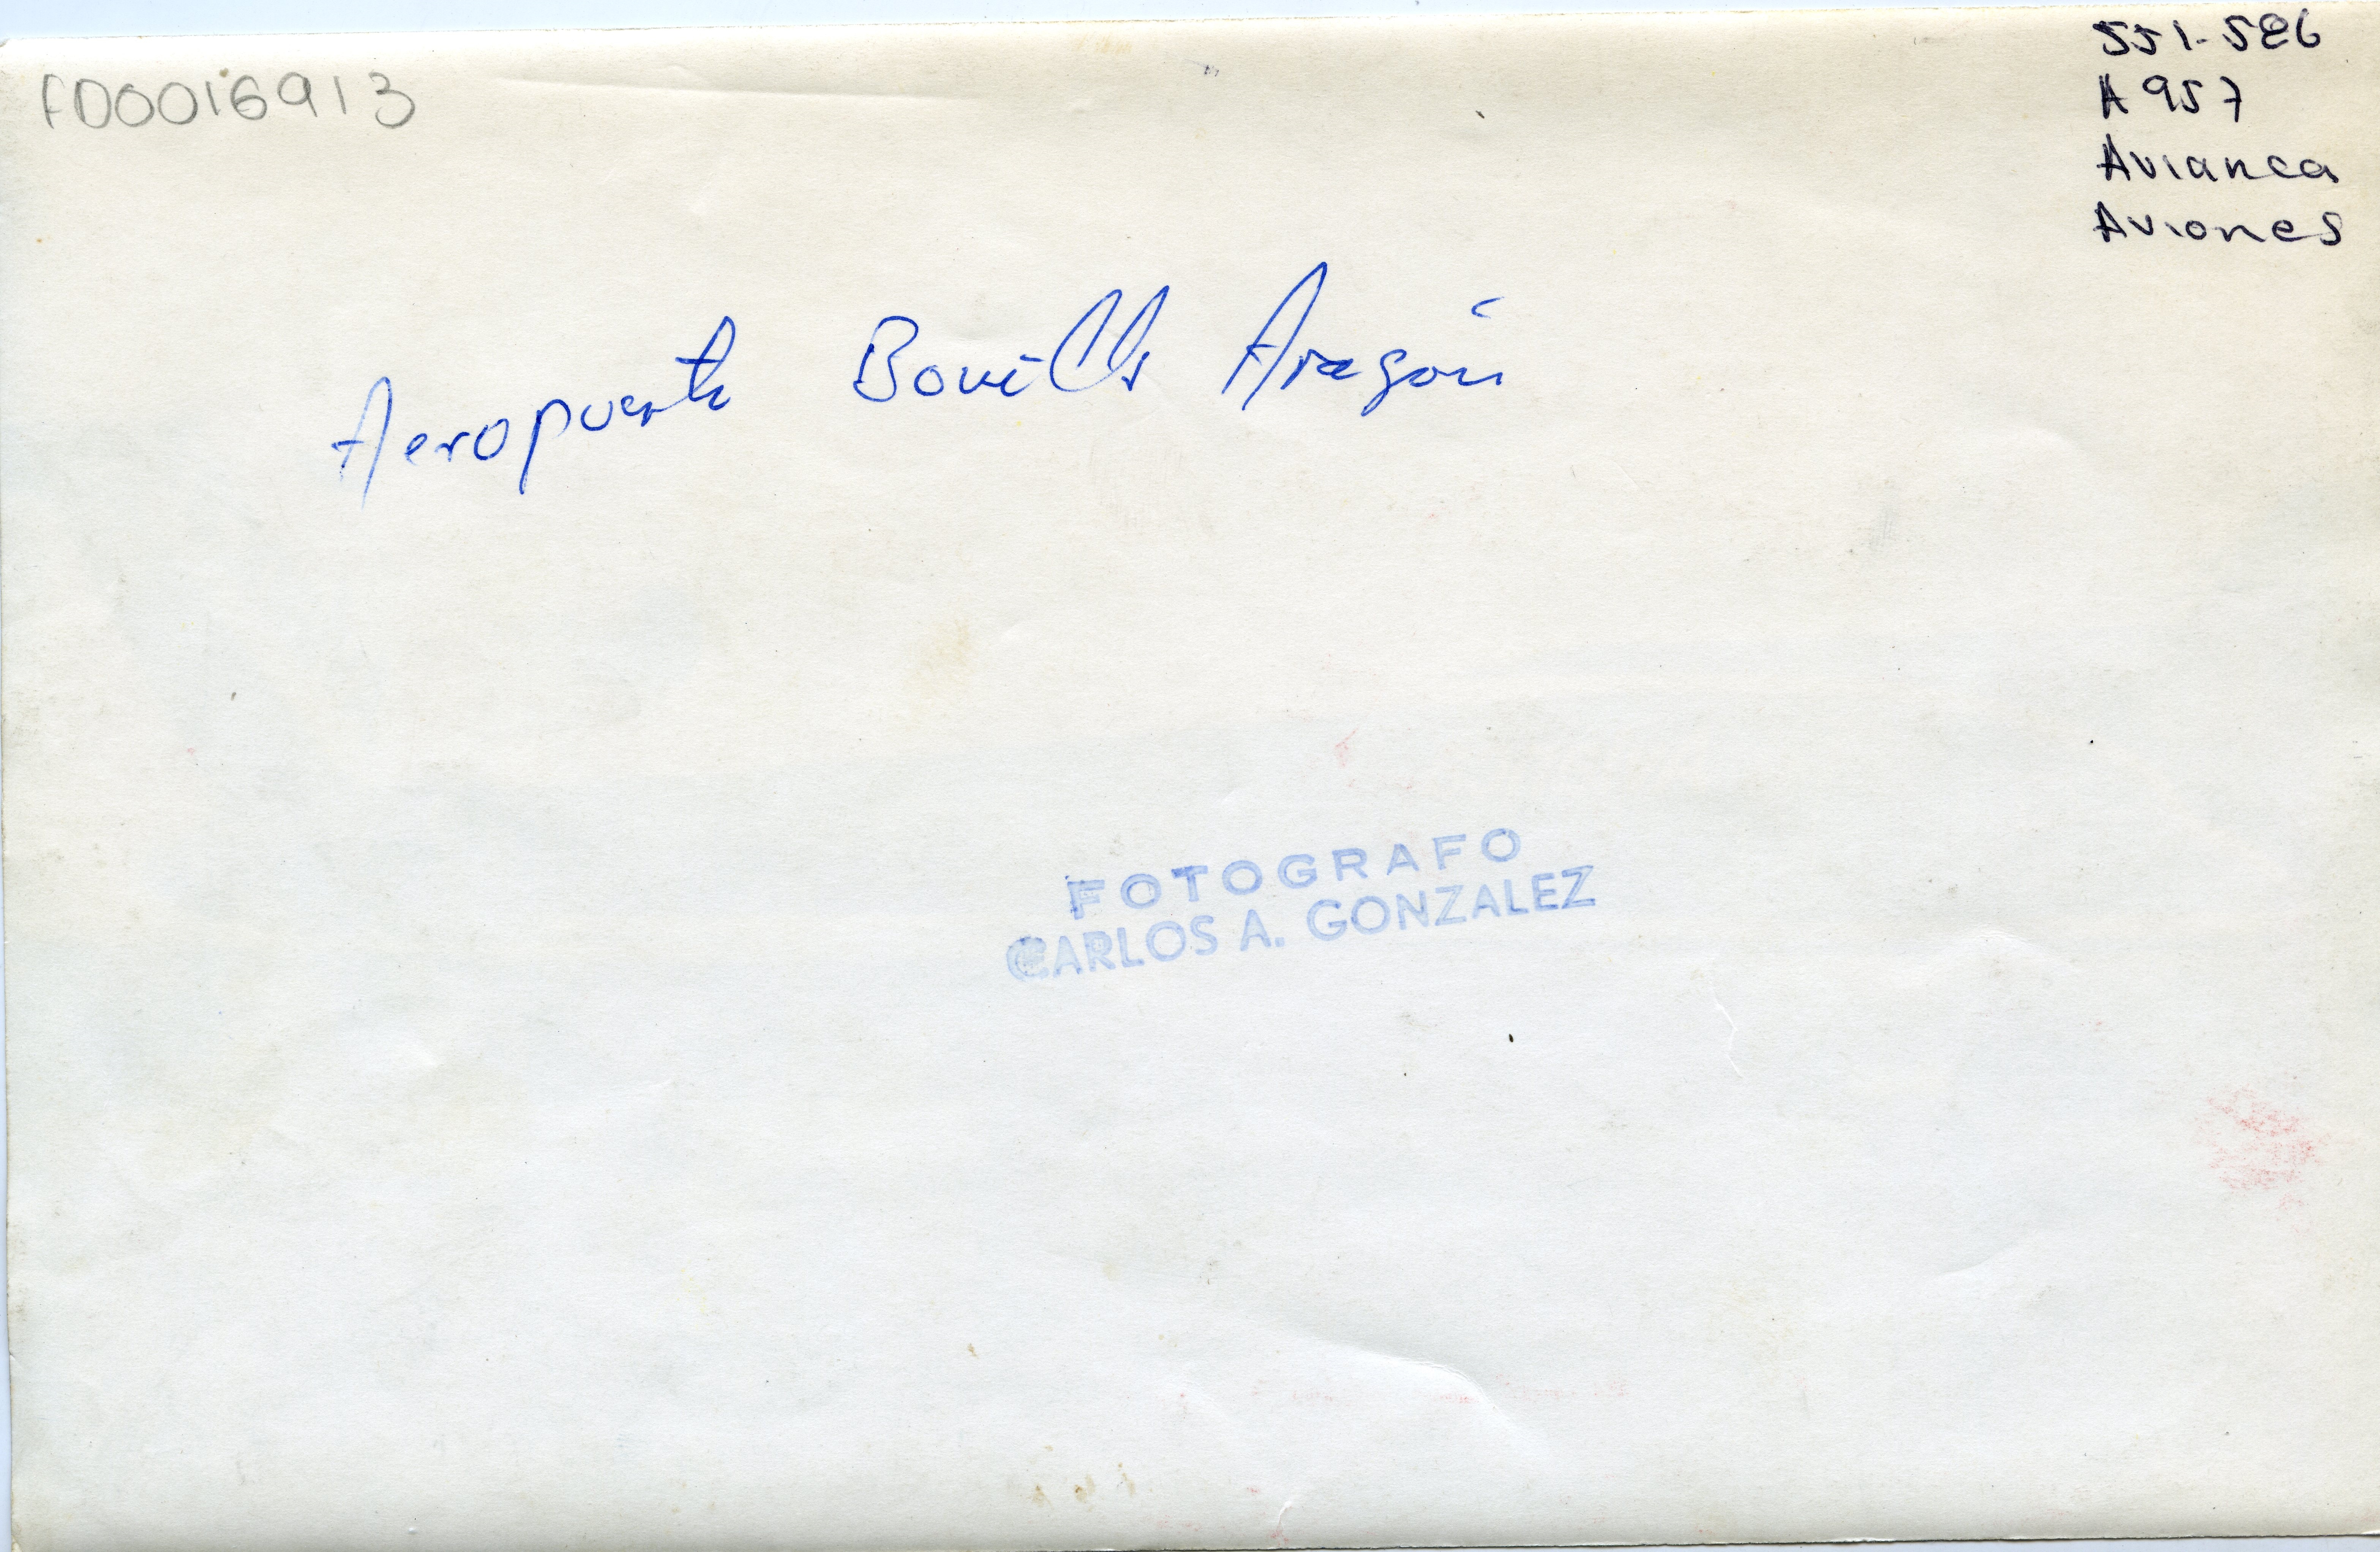 FD0016913
551-586
A957
Avianca
Aviones
Aeropuerto Bonilla Aragón
FOTOGRAFO
CARLOS A. GONZALEZ